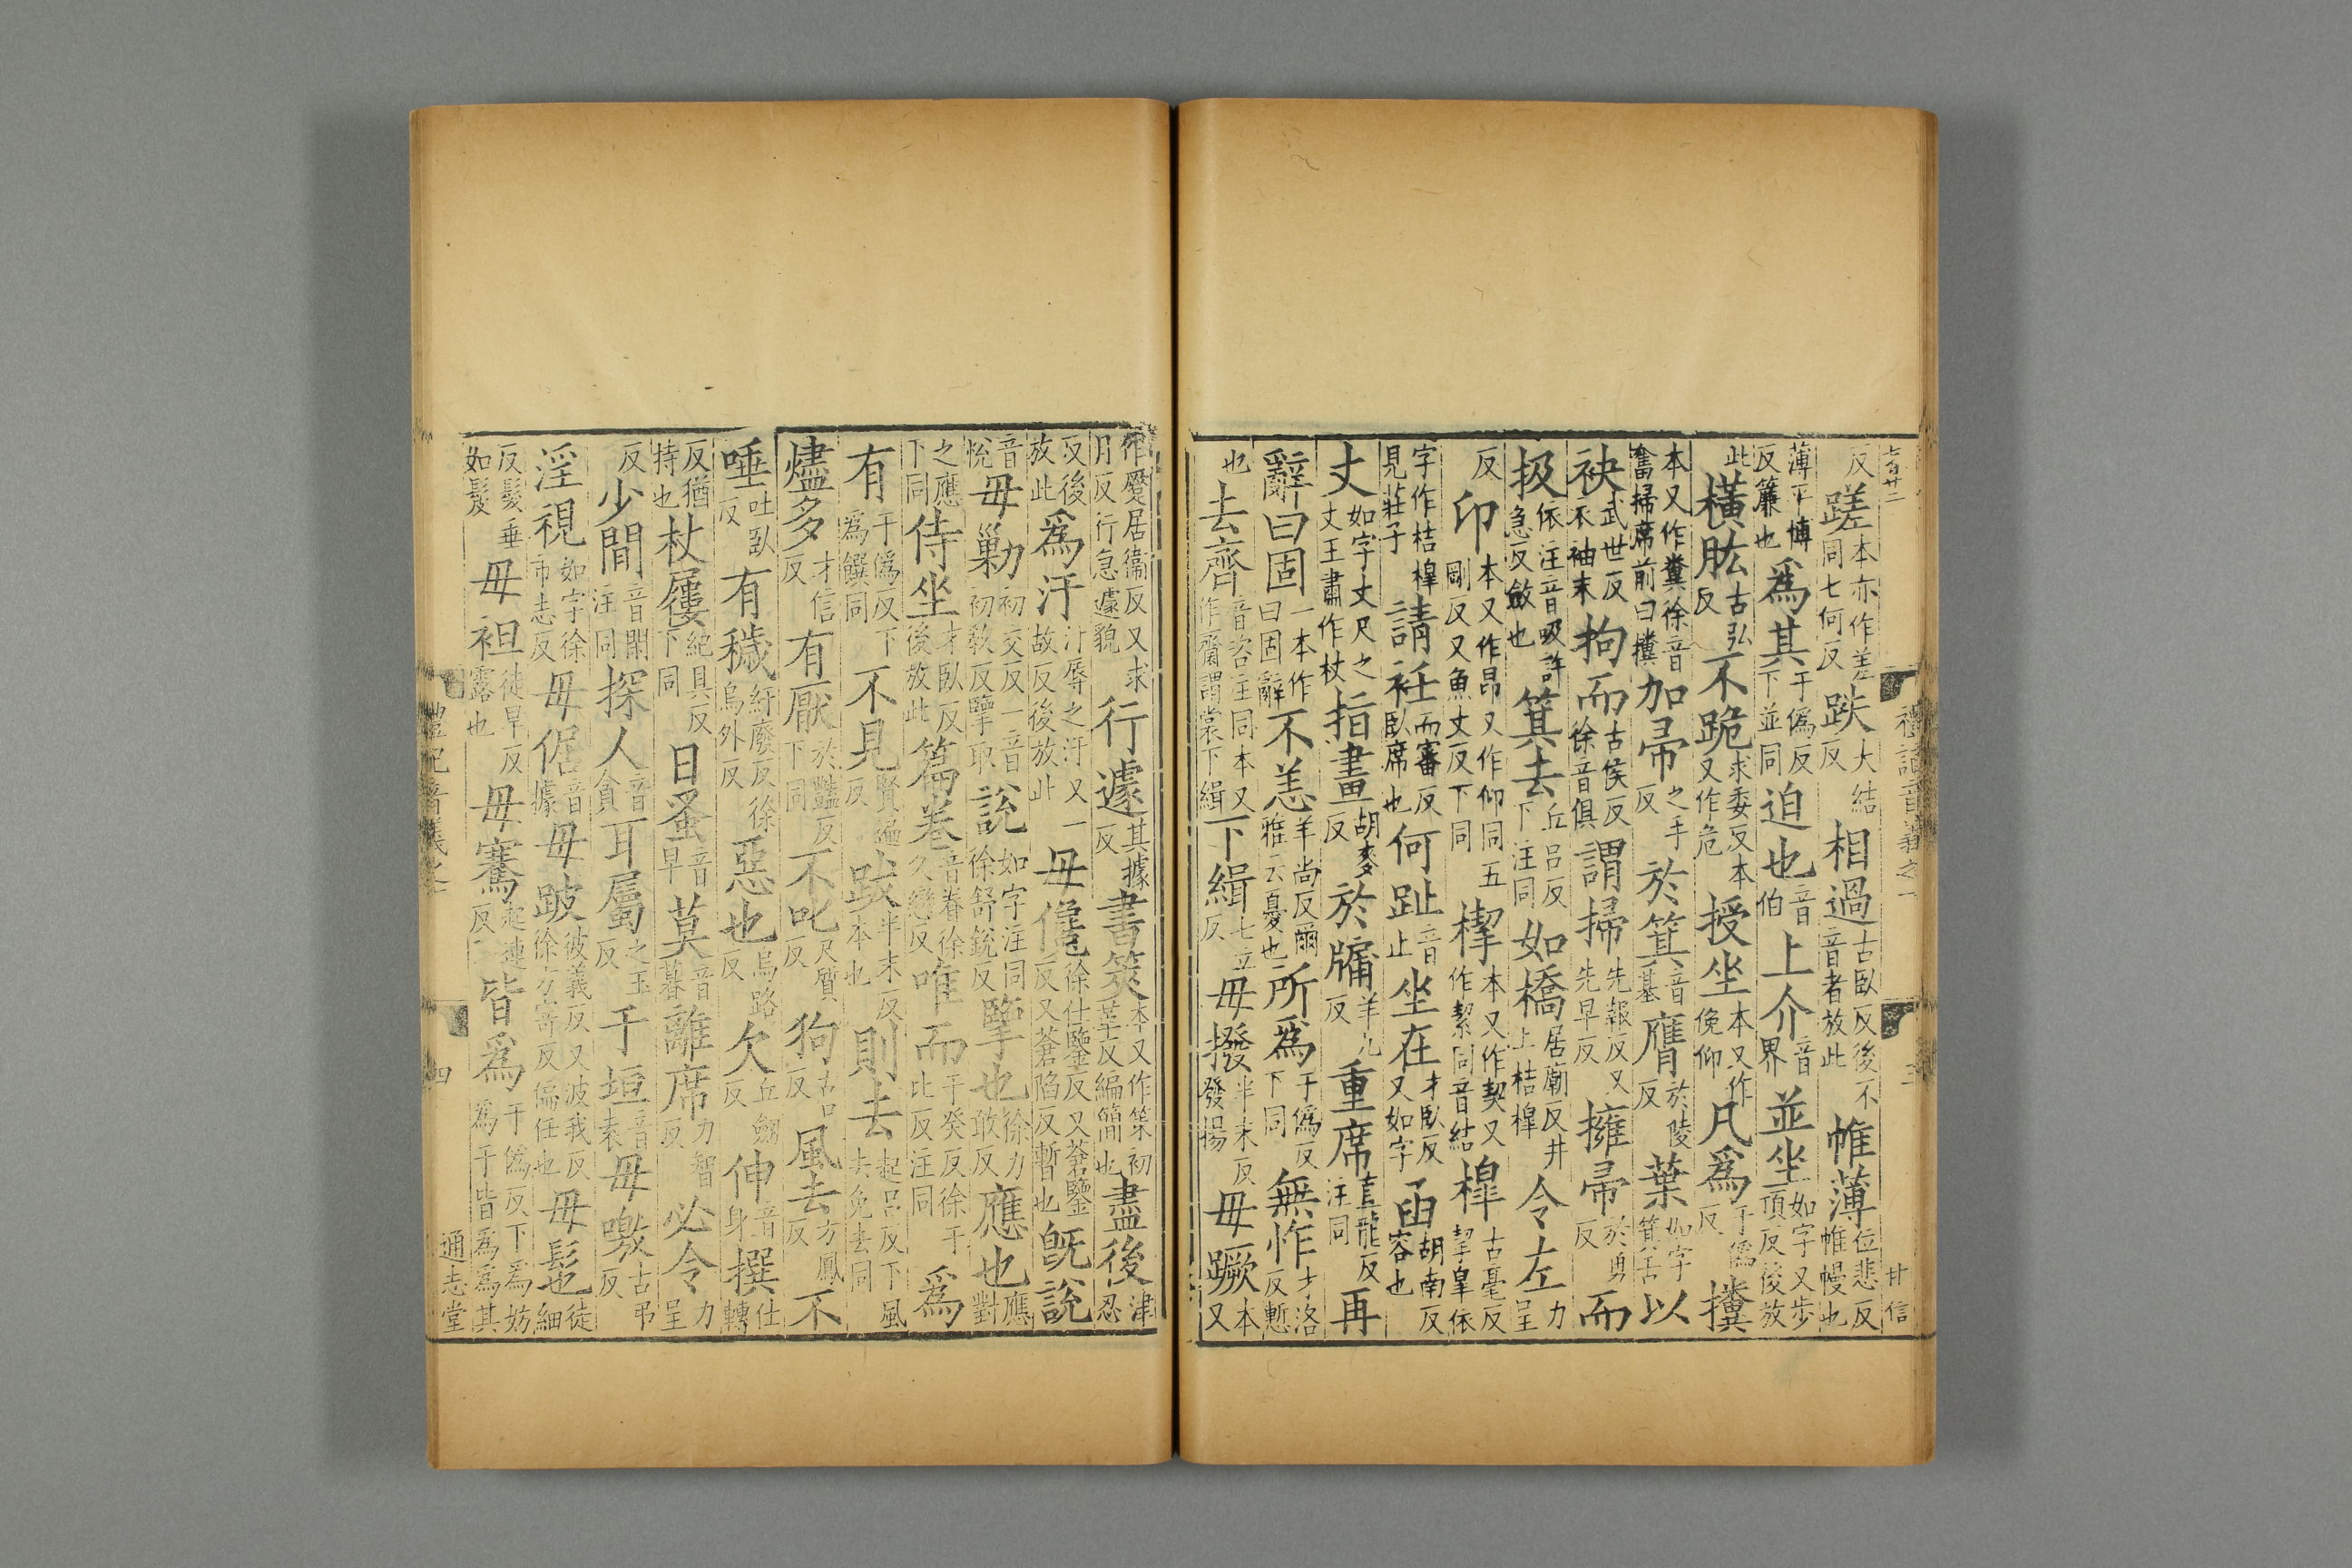 反蹉本亦作差同七何反跌大結反相過古臥反後不音者放此帷薄位悲反帷幔也
薄平博反簾也為其于偽反下並同迫也音伯上介音界並坐如字又步頂反後放
此橫肱古弘反不跪求委反本又作危授坐本又作俛仰凡為于偽反攗
本又作糞徐音奮掃席前曰攗加帚之手反於箕音基膺於陵反葉如字箕舌以
袂武世反衣袖末拘而古侯反徐音俱謂掃先報反又先早反擁帚於勇反而
扱依注音吸許急反斂也箕去丘呂反下注同如橋居廟反井上桔橰令左力呈
反卬本又作昂又作仰同五剛反又魚丈反下同楔本又作契又作絜同音結橰古毫反挈皐依
字作桔橰見莊子請衽而審反臥席也何趾音止坐在才臥反又如字函胡南反容也
丈如字丈尺之丈王肅作杖指畫胡麥反於牖羊九反重席直龍反注同再
辭曰固一本作曰固辭不恙羊尚反爾雅云憂也所為于偽反下同無怍才洛反慙
也去齊音咨注同本又作齎謂裳下緝下緝七立反毋撥半末反發揚毋蹶本又
禮記音義之一
三
甘信
作蹷居衞反又求月反行急遽貌行遽其據反書筴本又作策初革反編簡也盡後津忍
反後放此為汙汙辱之汙又一故反後放此毋儳徐仕鑒反又蒼鑒反又蒼陷反暫也旣說
音悅毋勦初交反一音初敎反擥取說如字注同徐舒銳反擥也徐力敢反應也應對
之應下同侍坐才臥反後放此篇卷音眷徐久戀反唯而于癸反徐于比反注同為
有于偽反下為饌同不見賢遍反跋半末反本也則去起呂反下風去免去同
燼多才信反有厭於豔反下同不叱尺質反狗古口反風去方鳳反不
唾吐臥反有穢紆廢反徐烏外反惡也烏路反欠丘劒反伸音身撰仕轉
反猶持也杖屨紀具反下同日蚤音早莫音暮離席力智反必令力呈
反少間音閑注同探人音貪耳屬之玉反于垣音袁毋噭古弔反
淫視如字徐市志反毋倨音據毋跛彼義反又波我反徐方寄反偏任也毋髢徒細
反髮垂如髲毋袒徒旱反露也毋騫起連反皆為于偽反下為妨為于皆為為其
禮記音義之一
四
通志堂